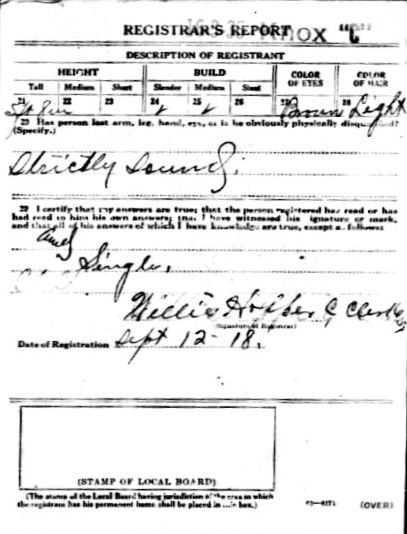 REGISTRAR'S REPORT
KNOX "C"
DESCRIPTION OF REGISTRANT
HEIGHT BUILD COLOR OF EYES COLOR OF HAIR
Tall Medium Short Slender Medium Stout
21 22 23 24 25 26 27 Brown 28 Light
29 Has person lost arm, leg, hand, eye, or is he obviously physically disqualified?
(Specify.)
Strictly Sound;
30 I certify that my answers are true; that the person registered has read or has
had read to him his own answers; that I have witnessed his signature or mark,
and that all of his answers of which I have knowledge are true, except as follows:
Single,
Willie C Clerk
(Signature of Registrar)
Date of Registration Sept 12-18.
(STAMP OF LOCAL BOARD)
(The stamp of the Local Board having jurisdiction of the area in which
the registrant has his permanent home shall be placed in this box.)
(OVER)